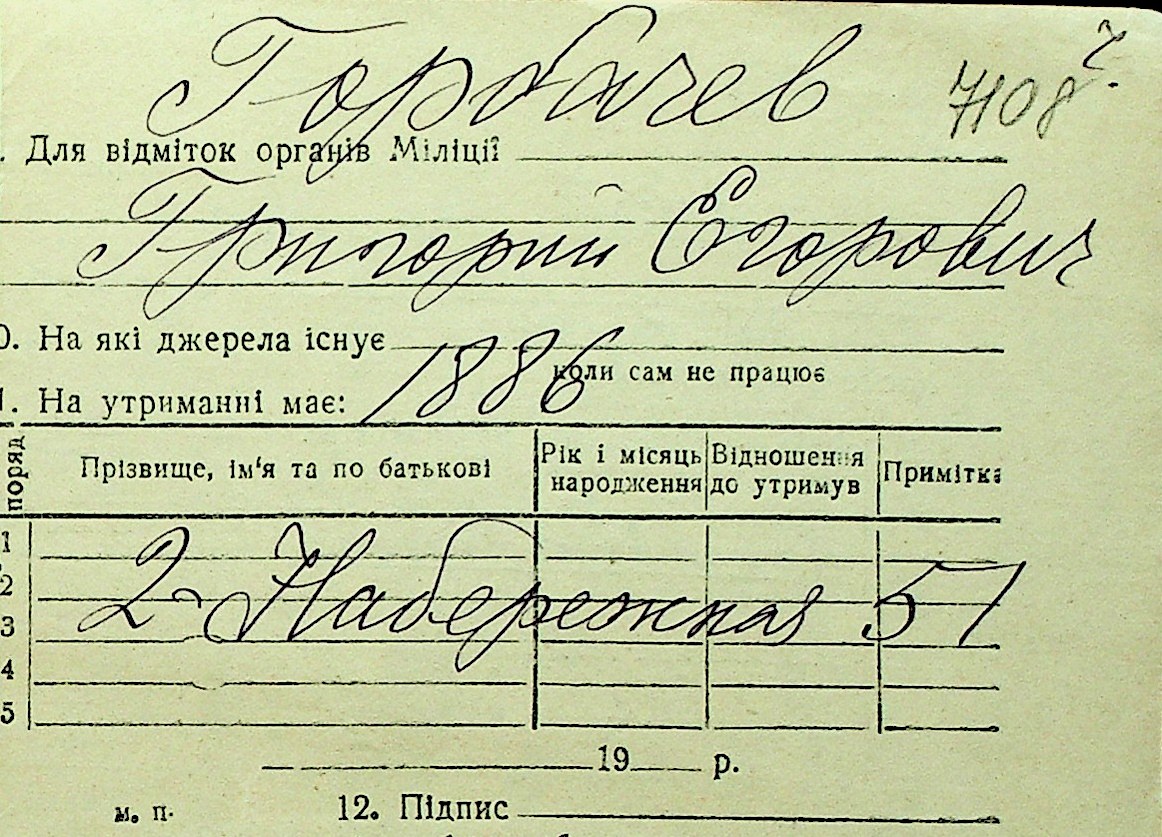 Горбачев
7108 г.
. Для відміток органів Міліції
Григорий Егорович
0. На які джерела існує
коли сам не працює
1886
1. На утриманні має:
поряд
Прізвище, ім'я та по батькові
Рік і місяць народження
Відношення до утримув
Примітка
1
2
3
4
5
2 Набережная 51
19 р.
м. п.
12. Підпис